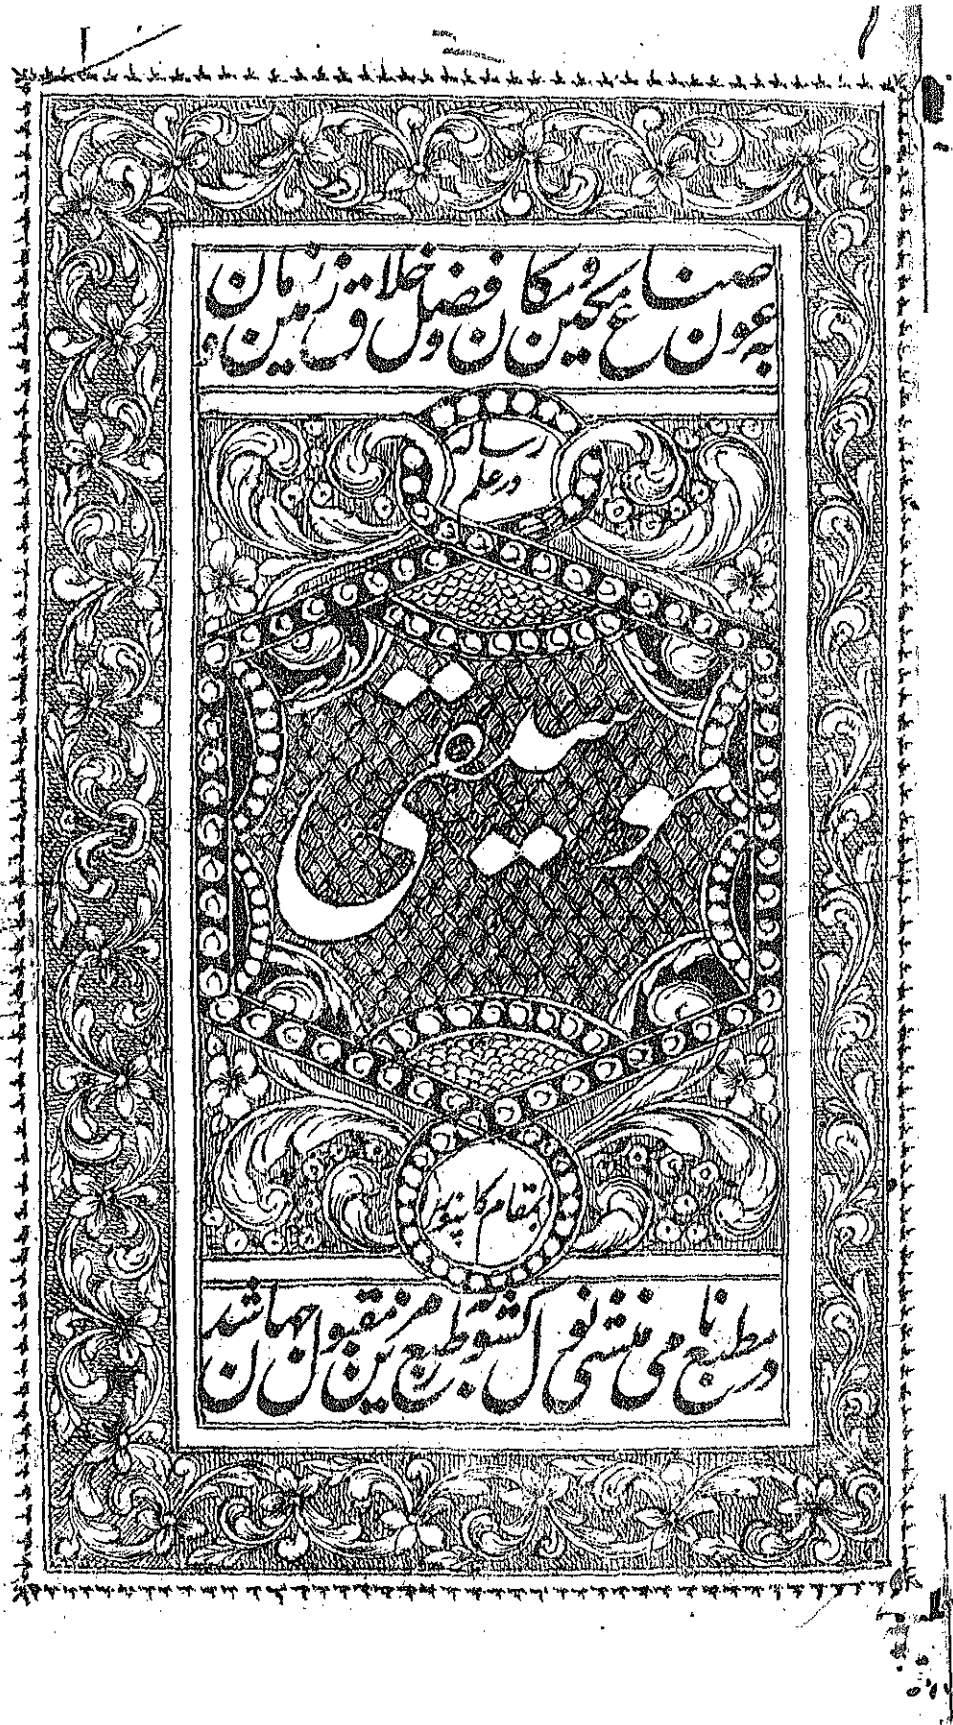 بعون صناع مکین و مکان و فضل خلاق زمین و زمان
رساله
در علم
موسیقی
بمقام کانپور
در مطبع نامی منشی نول کشور بطرز مزین مقبول جهان شد